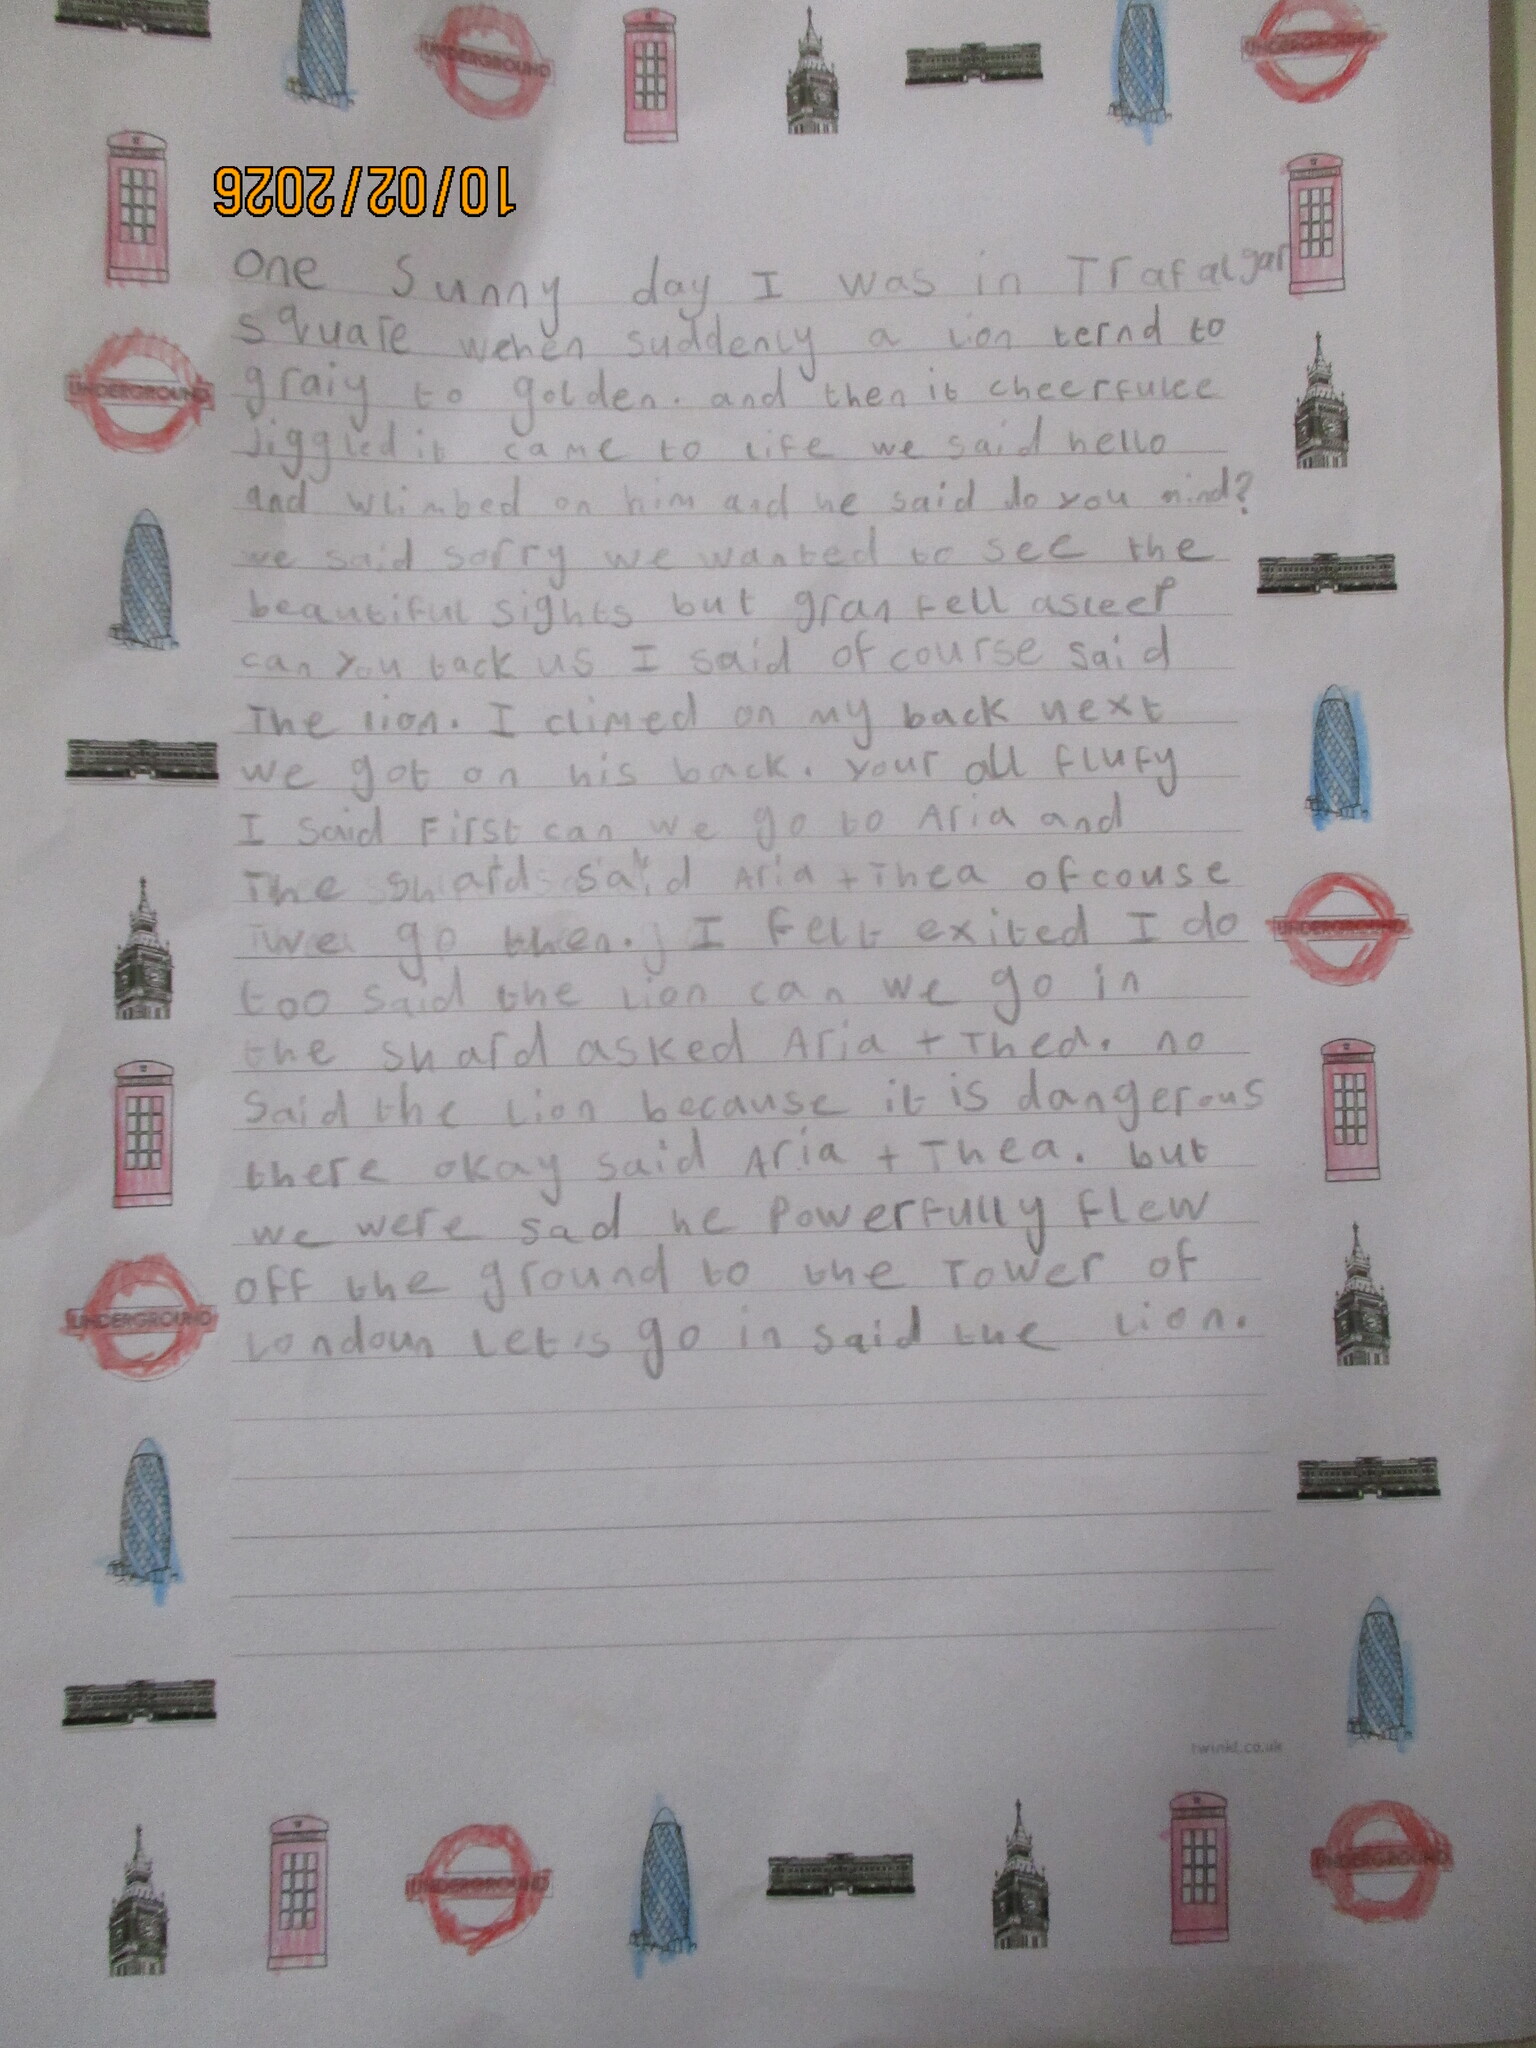 UNDERGROUND
UNDERGROUND
10/02/2026
one sunny day I was in Trafalgar
square wehen suddency a lion ternd to
graiy to golden. and then it cheerfulee
Jiggled it came to life we said hello
and wlimbed on him and he said do you mind?
we said sorry we wanted to see the
beautiful sights but gran fell asleep
can you back us I said of course said
The lion. I climed on my back next
we got on his back. your all flufy
I said First can we go to Aria and
The shard said Aria + Thea of couse
we go then. I felt exited I do
too said the lion can we go in
the shard asked Aria + Thea. no
said the lion because it is dangerous
there okay said Aria + Thea. but
we were sad he powerfully flew
off the ground to the Tower of
Londoun Let's go in said the lion.
UNDERGROUND
UNDERGROUND
UNDERGROUND
twinkl.co.uk
UNDERGROUND
UNDERGROUND